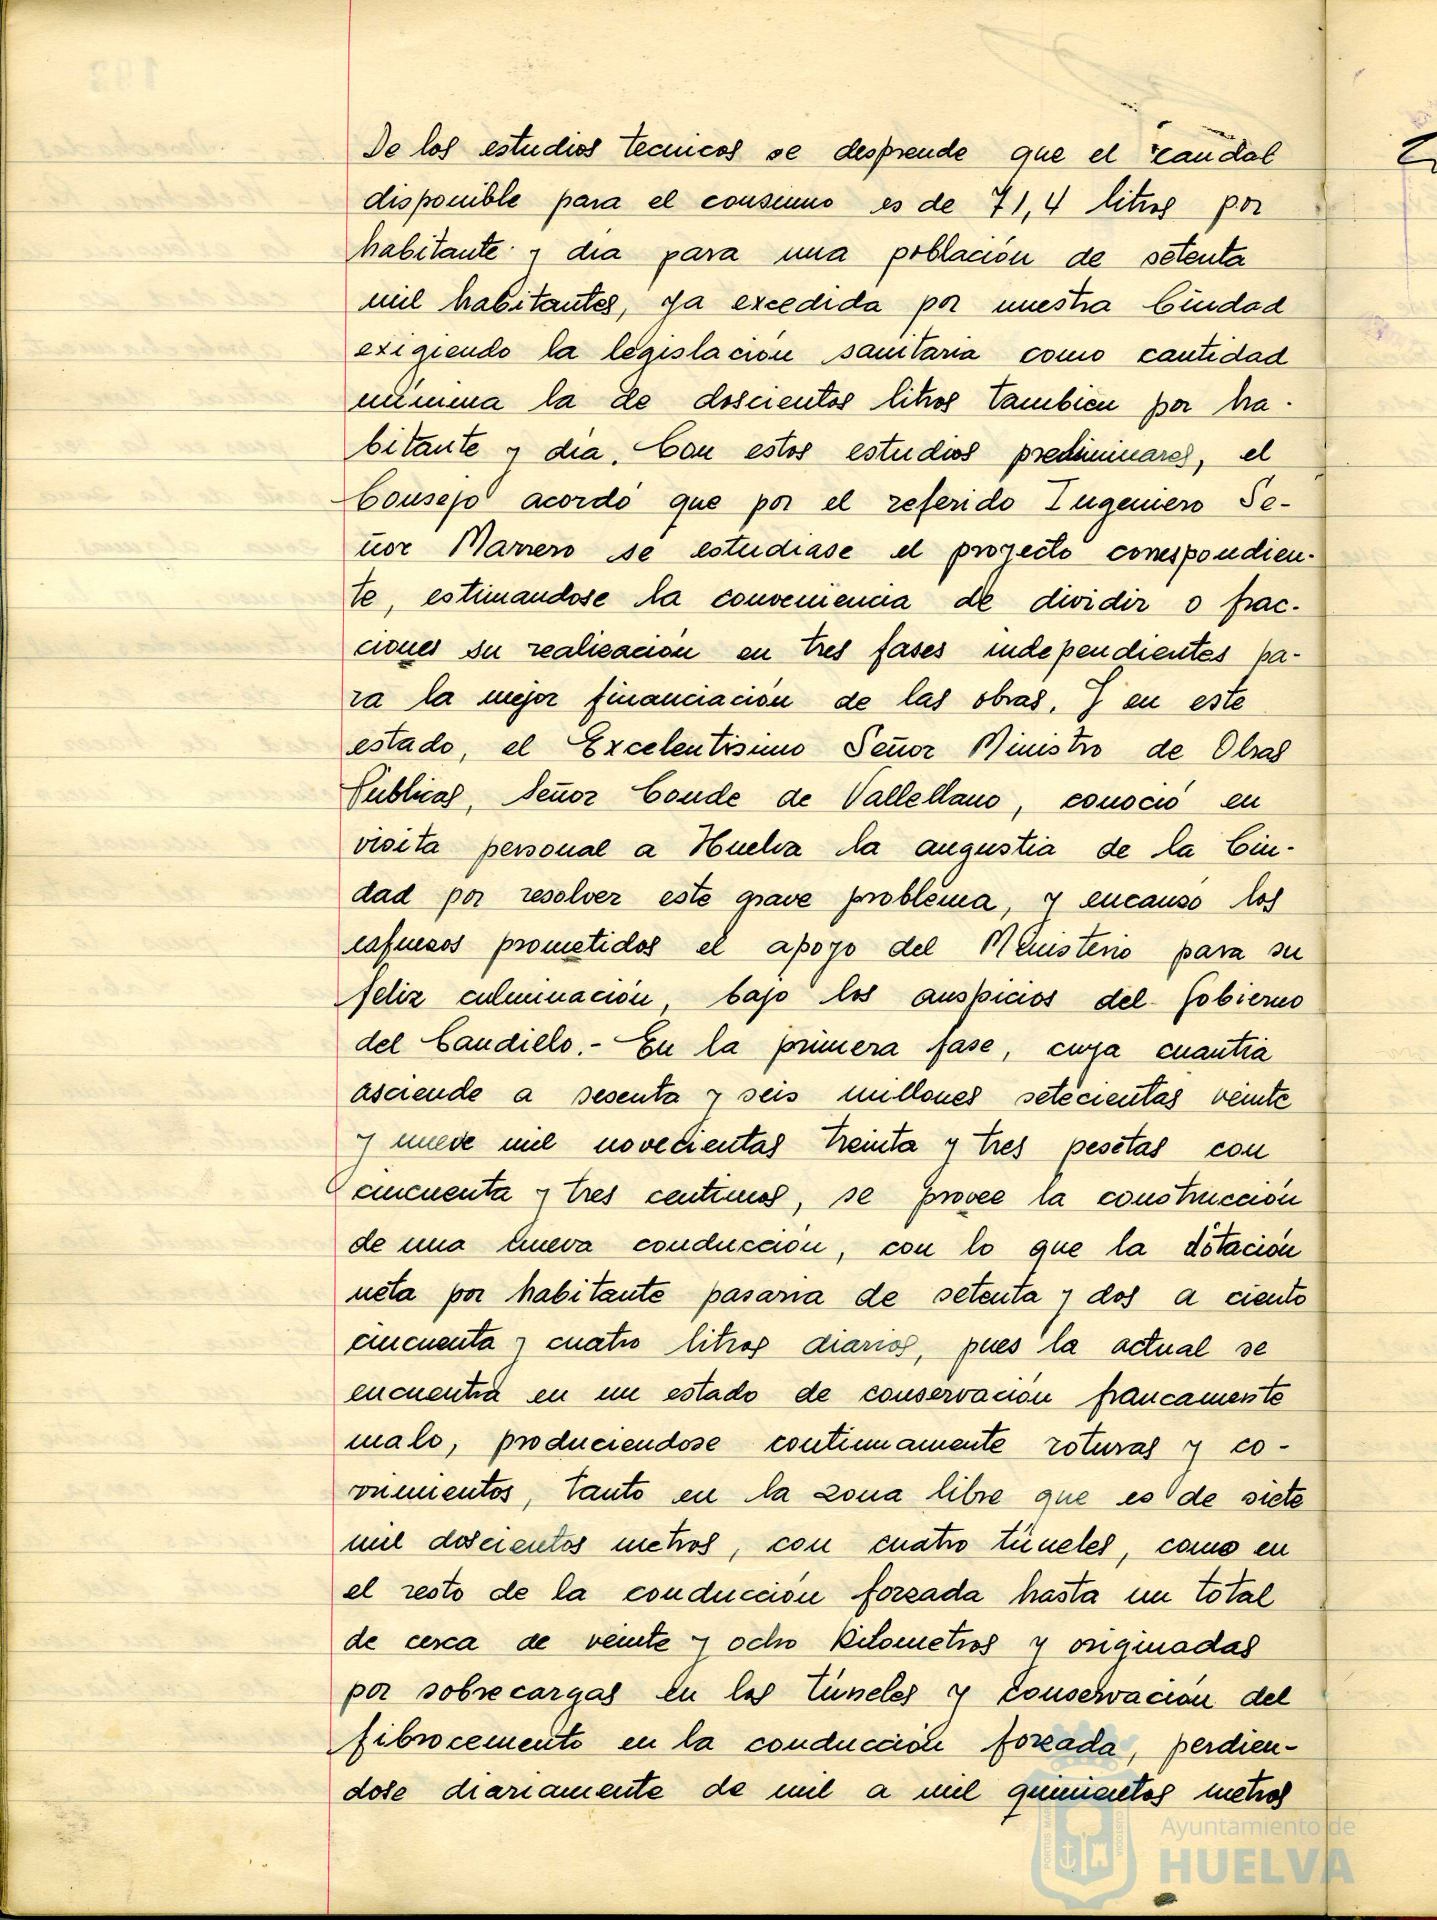 De los estudios tecnicos se desprende que el caudal
disponible para el consumo es de 71,4 litros por
habitante y dia para una población de setenta
mil habitantes, ya excedida por nuestra Ciudad
exigiendo la legislación sanitaria como cantidad
mínima la de doscientos litros tambien por ha-
bitante y día. Con estos estudios preliminares, el
Consejo acordó que por el referido Ingeniero Se-
ñor Marrero se estudiase el proyecto correspondien-
te, estimandose la conveniencia de dividir o frac-
ciones su realización en tres fases independientes pa-
ra la mejor financiación de las obras. Y en este
estado, el Excelentisimo Señor Ministro de Obras
Públicas, Señor Conde de Vallellano, conoció en
visita personal a Huelva la angustia de la Ciu-
dad por resolver este grave problema, y encauso los
esfuesos prometidos el apoyo del Ministerio para su
feliz culminación, bajo los auspicios del Gobierno
del Caudillo.- En la primera fase, cuya cuantia
asciende a sesenta y seis millones setecientas veinte
y nueve mil novecientas treinta y tres pesetas con
cincuenta y tres centimos, se provee la construcción
de una nueva conducción, con lo que la dotación
neta por habitante pasaria de setenta y dos a ciento
cincuenta y cuatro litros diarios, pues la actual se
encuentra en un estado de conservación francamente
malo, produciendose continuamente roturas y co-
rrimientos, tanto en la zona libre que es de siete
mil doscientos metros, con cuatro túneles, como en
el resto de la conducción forzada hasta un total
de cerca de veinte y ocho kilometros y originadas
por sobrecargas en los túneles y conservación del
fibrocemento en la conducción forzada, perdien-
dose diariamente de mil a mil quinientos metros
Ayuntamiento de
HUELVA